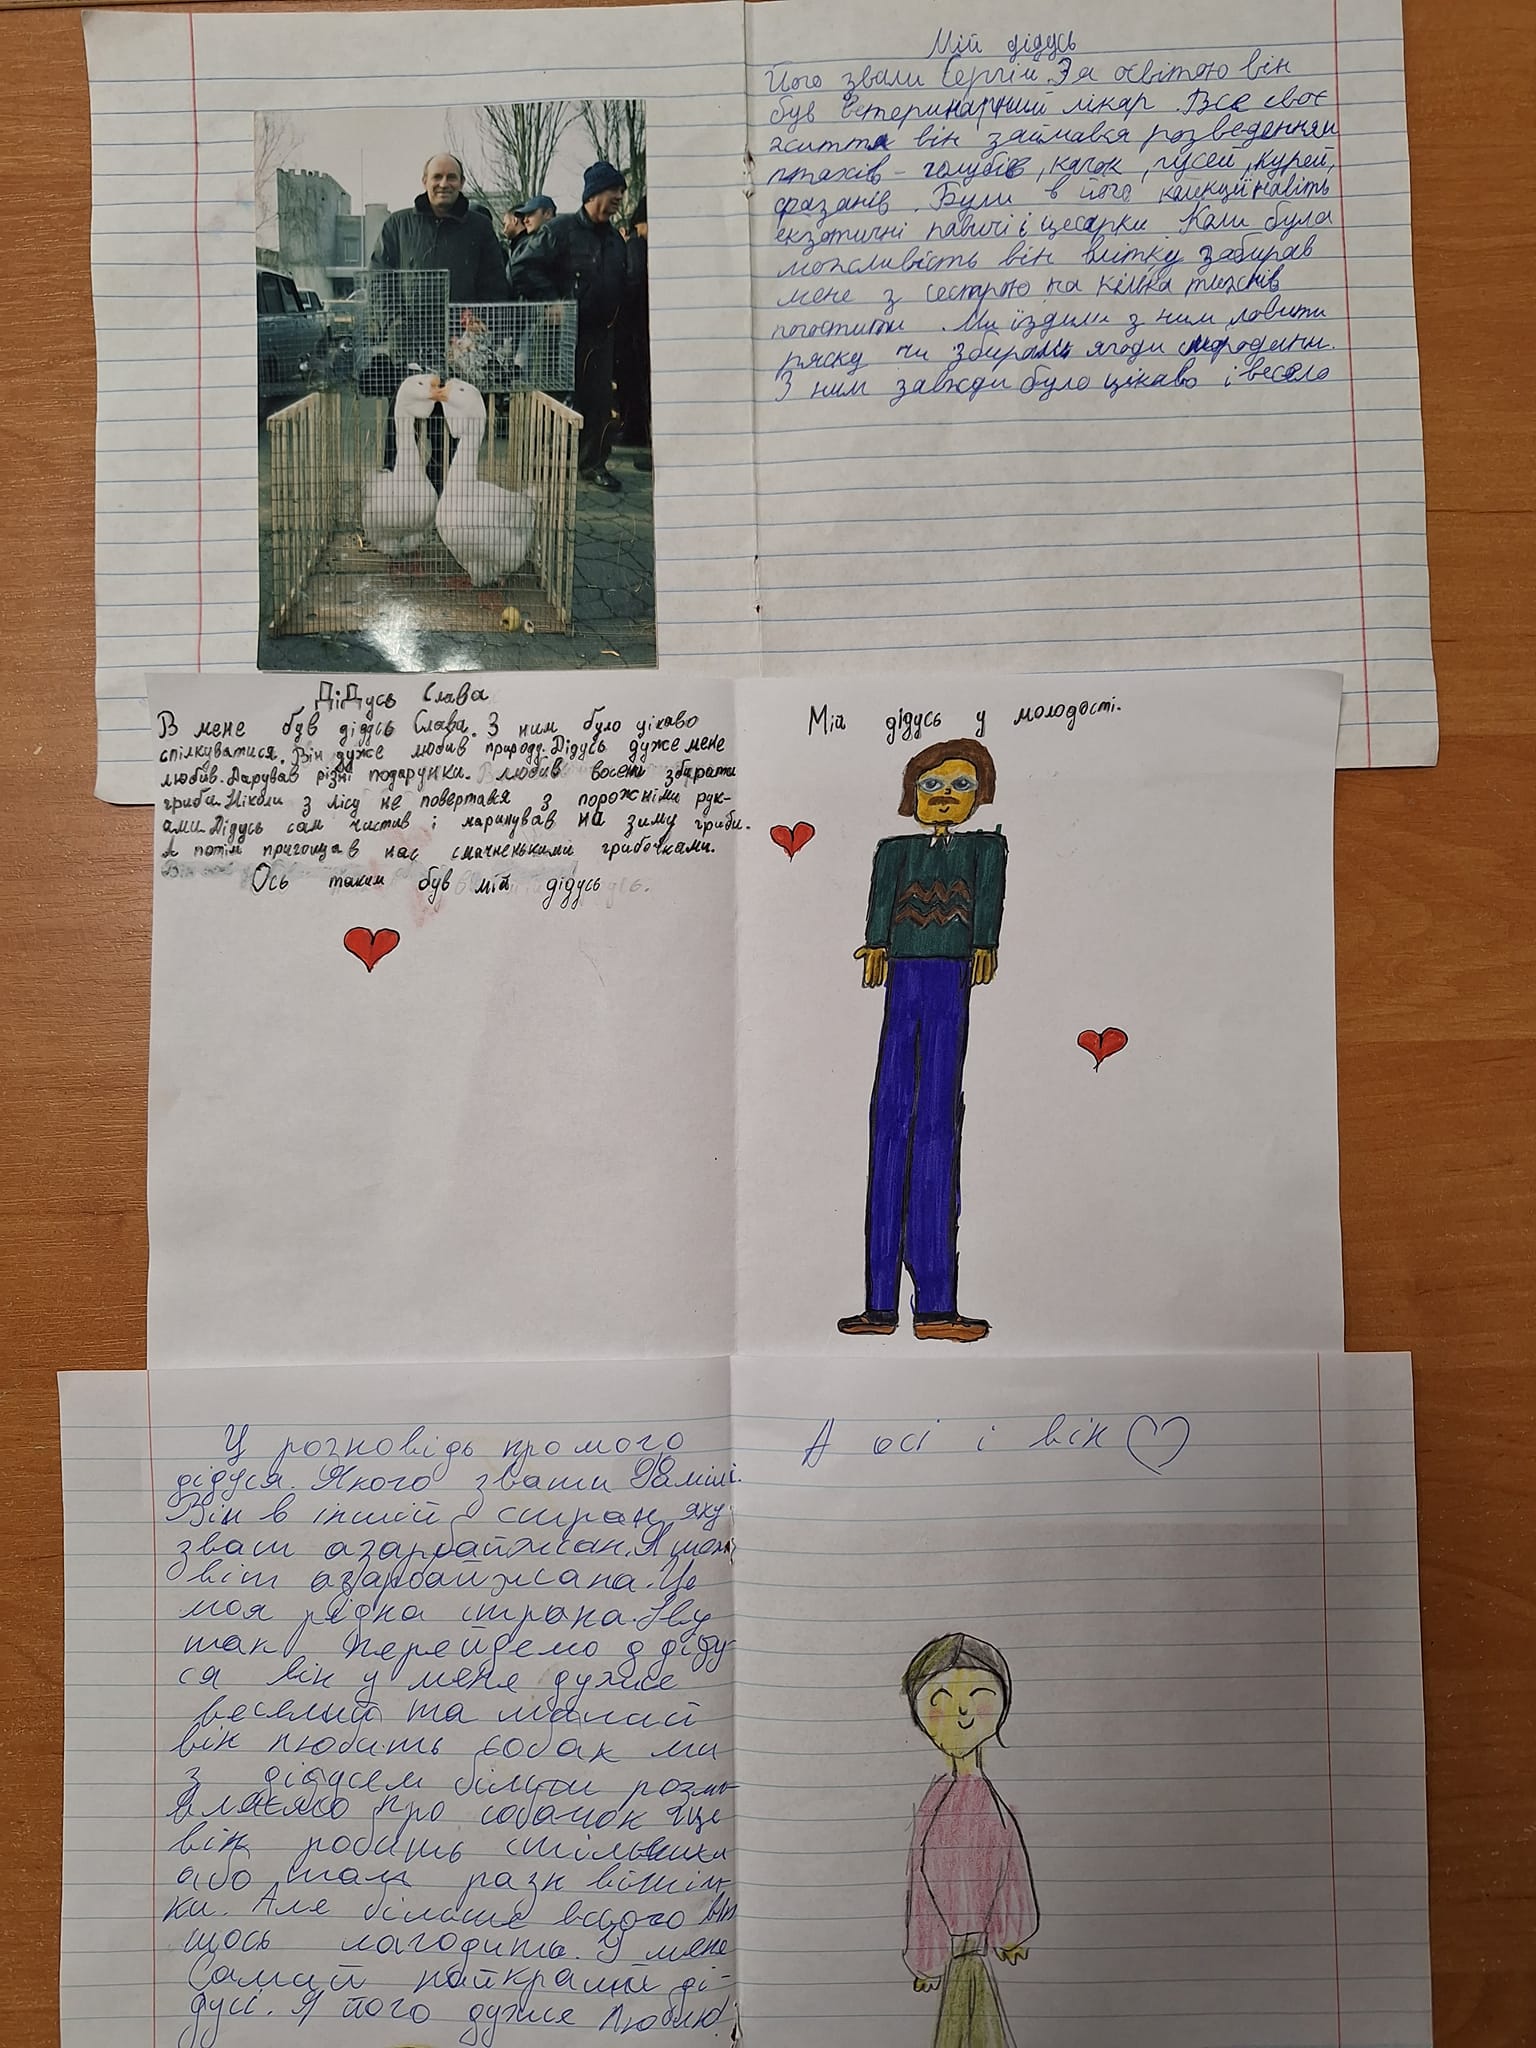 Мій дідусь
Його звали Сергій. За освітою він
був ветеринарний лікар. Все своє
життя він займався розведенням
птахів - голубів, качок, гусей, курей,
фазанів. Були в його колекції навіть
екзотичні павичі і цесарки. Коли була
можливість він влітку забирав
мене з сестрою на кілька тижнів
погостити. Ми їздили з ним ловити
ряску чи збирали ягоди смородини.
З ним завжди було цікаво і весело
Дідусь Слава
В мене був дідусь Слава. З ним було цікаво
спілкуватися. Він дуже любив природу. Дідусь дуже мене
любив. Дарував різні подарунки. любив восени збирати
гриби. Ніколи з лісу не повертався з порожніми рук-
ами. Дідусь сам чистив і маринував на зиму гриби.
А потім пригощав нас смачненькими грибочками.
Ось таким був мій дідусь.
Мій дідусь у молодості.
У розповідь про мого
дідуся. Якого звати
Він в іншій стран яку
зват азарбайжан. Я
віт азарбайжана. Це
моя рідна страна. Ну
так перейдемо д діду
ся він у мене дуже
веселий та
він любить собак ми
з дідусем більш розмо
про собачок ще
він робить стільчики
або там разн
ки. Але більше всього він
щось лагодить. У мене
самий найкращий ді-
дусі. Я його дуже люблю
А осі і він